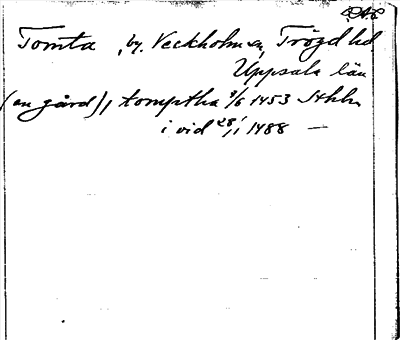 RAÄ
Tomta, by, Veckholm sn, Trögd hd
Uppsala län
(en gård), tomptha 8/6 1453 Sthlm
i vid 28/1 1488 —